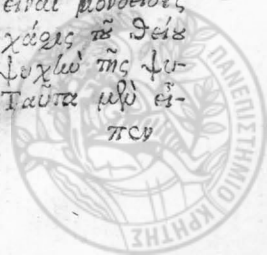 εἶναι μονοειδὲς
χάρις τοῦ θείου
ψυχὴν τῆς ψυ-
Ταῦτα μὲν εἶ-
πεν
ΠΑΝΕΠΙΣΤΗΜΙΟ ΚΡΗΤΗΣ